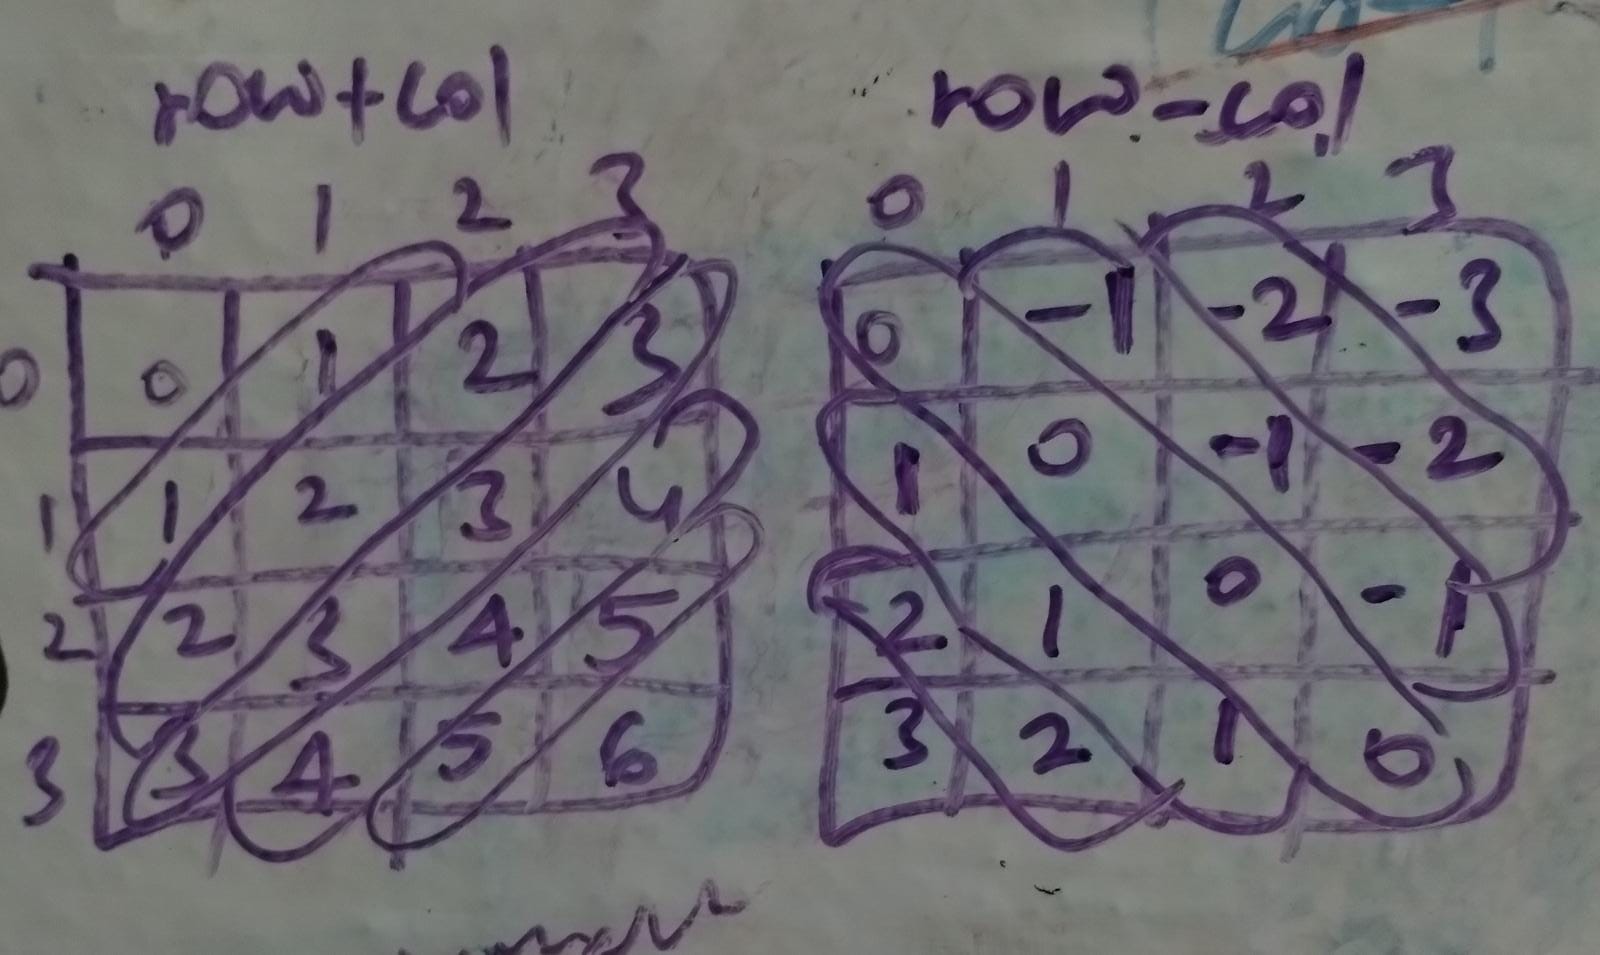 row+col
0 1 2 3
0 0 1 2 3
1 1 2 3 4
2 2 3 4 5
3 3 4 5 6
row-col
0 1 2 3
0 -1 -2 -3
1 0 -1 -2
2 1 0 -1
3 2 1 0